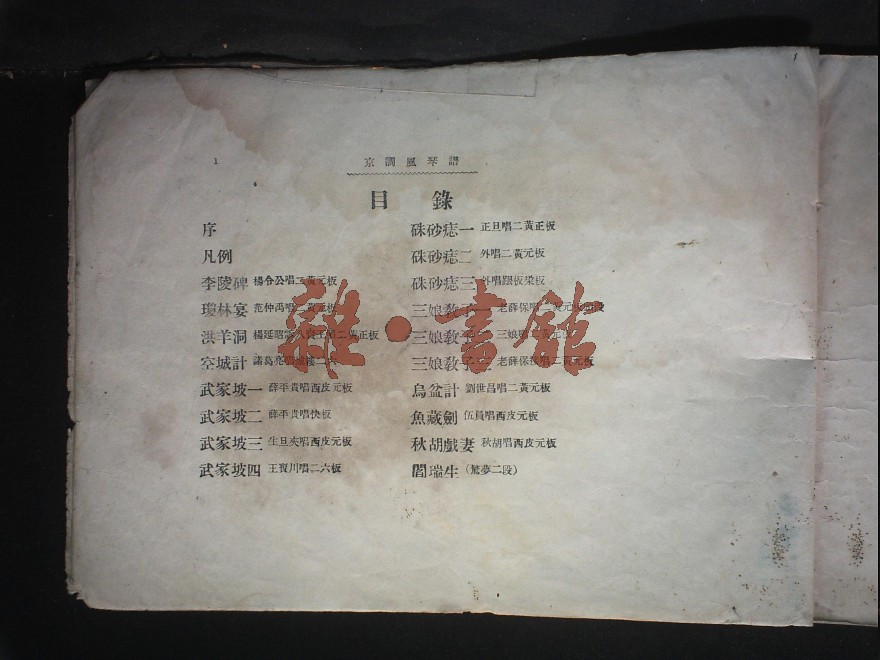 1
京調風琴譜
目錄
序
凡例
李陵碑 楊令公唱二黃元板
瓊林宴 范仲禹唱二黃元板
洪羊洞 楊延昭 二黃正板
空城計 諸葛亮
武家坡一 薛平貴唱西皮元板
武家坡二 薛平貴唱快板
武家坡三 生旦夾唱西皮元板
武家坡四 王寶川唱二六板
硃砂痣一 正旦唱二黃正板
硃砂痣二 外唱二黃元板
硃砂痣三 外唱跟板梁板
三娘教子一 老薛保唱
三娘教子二 三娘唱 元板
三娘教子三 老薛保 唱二黃元板
烏盆計 劉世昌唱二黃元板
魚藏劍 伍員唱西皮元板
秋胡戲妻 秋胡唱西皮元板
閻瑞生 (驚夢二段)
雜·書館